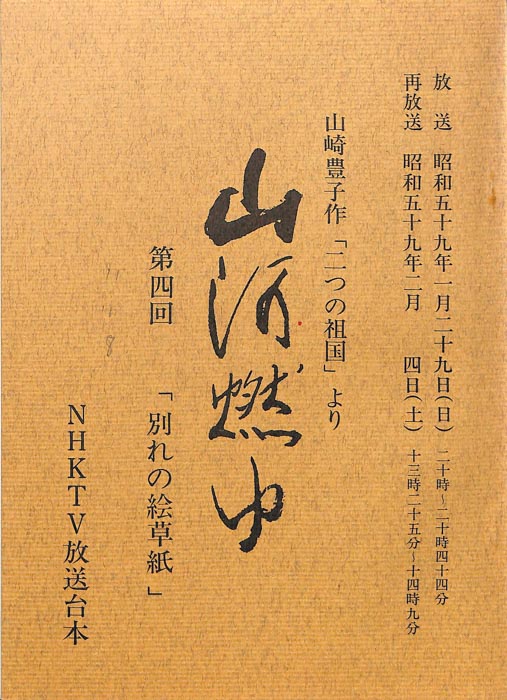 放送 昭和五十九年一月二十九日(日) 二十時~二十時四十四分
再放送 昭和五十九年二月 四日(土) 十三時二十五分~十四時九分
山崎豊子作「二つの祖国」より
山河燃ゆ
第四回 「別れの絵草紙」
NHKTV放送台本